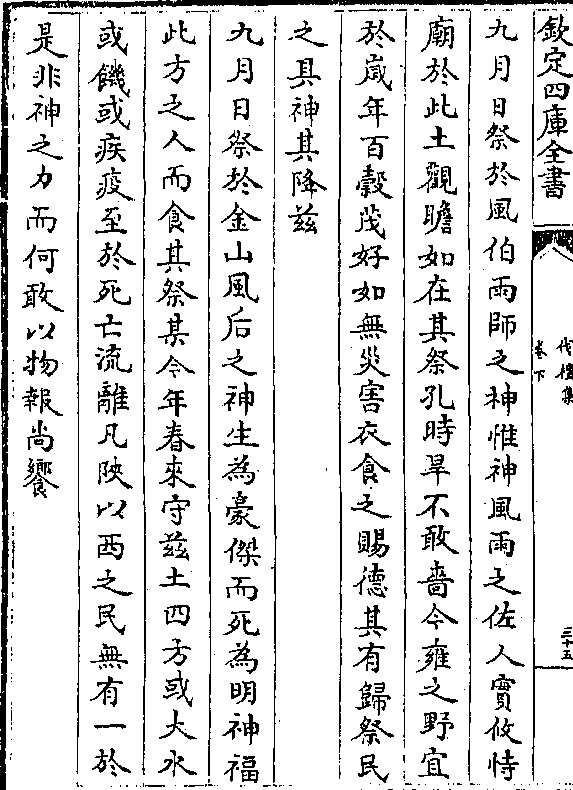 欽定四庫全書
伐檀集
卷下
三十五
九月日祭於風伯雨師之神惟神風雨之佐人實攸恃
廟於此土觀瞻如在其祭孔時旱不敢嗇今雍之野宜
於歲年百糓茂好如無災害衣食之賜德其有歸祭民
之具神其降兹
九月日祭於金山風后之神生為豪傑而死為明神福
此方之人而食其祭某今年春來守兹土四方或大水
或饑或疾疫至於死亡流離凡陜以西之民無有一於
是非神之力而何敢以物報尚饗